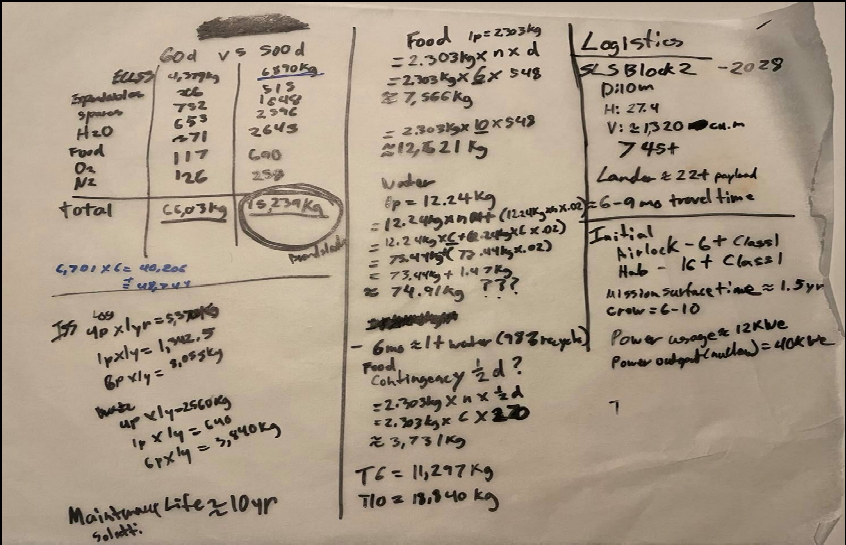 60d vs 500d
ECLSS 4,379kg 6390kg
Expendables 515
Spares 732 1648
H2O 653 2396
Food 271 2645
O2 117 690
N2 126
total 15,239kg
6,701 x 6 = 40,206
ISS
4p x 1yr =
1p x 1y = 1,342.5
6p x 1y = 8,055kg
4p x 1y = 2560kg
1p x 1y = 640
6p x 1y = 3,840kg
Life ≈ 10yr
Food 1p = 2.303kg
= 2.303kg x n x d
= 2.303kg x 6 x 548
≈ 7,566kg
= 2.303kg x 10 x 548
≈ 12,621 kg
Water
= 12.24kg
= 12.24kg x n + (12.24kg x n x .02)
= 12.24kg x 6 + (12.24kg x 6 x .02)
= 73.44kg (73.44kg x .02)
= 73.44kg + 1.47kg
≈ 74.91kg ???
- 6mo ≈ 1t water (98% recycle)
Food
Contingency 1/2 d?
= 2.303kg x n x 1/2 d
= 2.303kg x 6 x 270
≈ 3,731kg
T6 = 11,297 kg
T10 = 18,840 kg
Logistics
SLS Block 2 - 2028
D: 10m
H: 27.4
V: ≈ 1,320 cu.m
> 45t
Lander ≈ 22t payload
≈ 6-9 mo travel time
Initial
Airlock - 6t Class 1
Hab - 16t Class 1
Mission surface time ≈ 1.5yr
Crew = 6-10
Power usage ≈ 12KWe
Power output = 40KWe